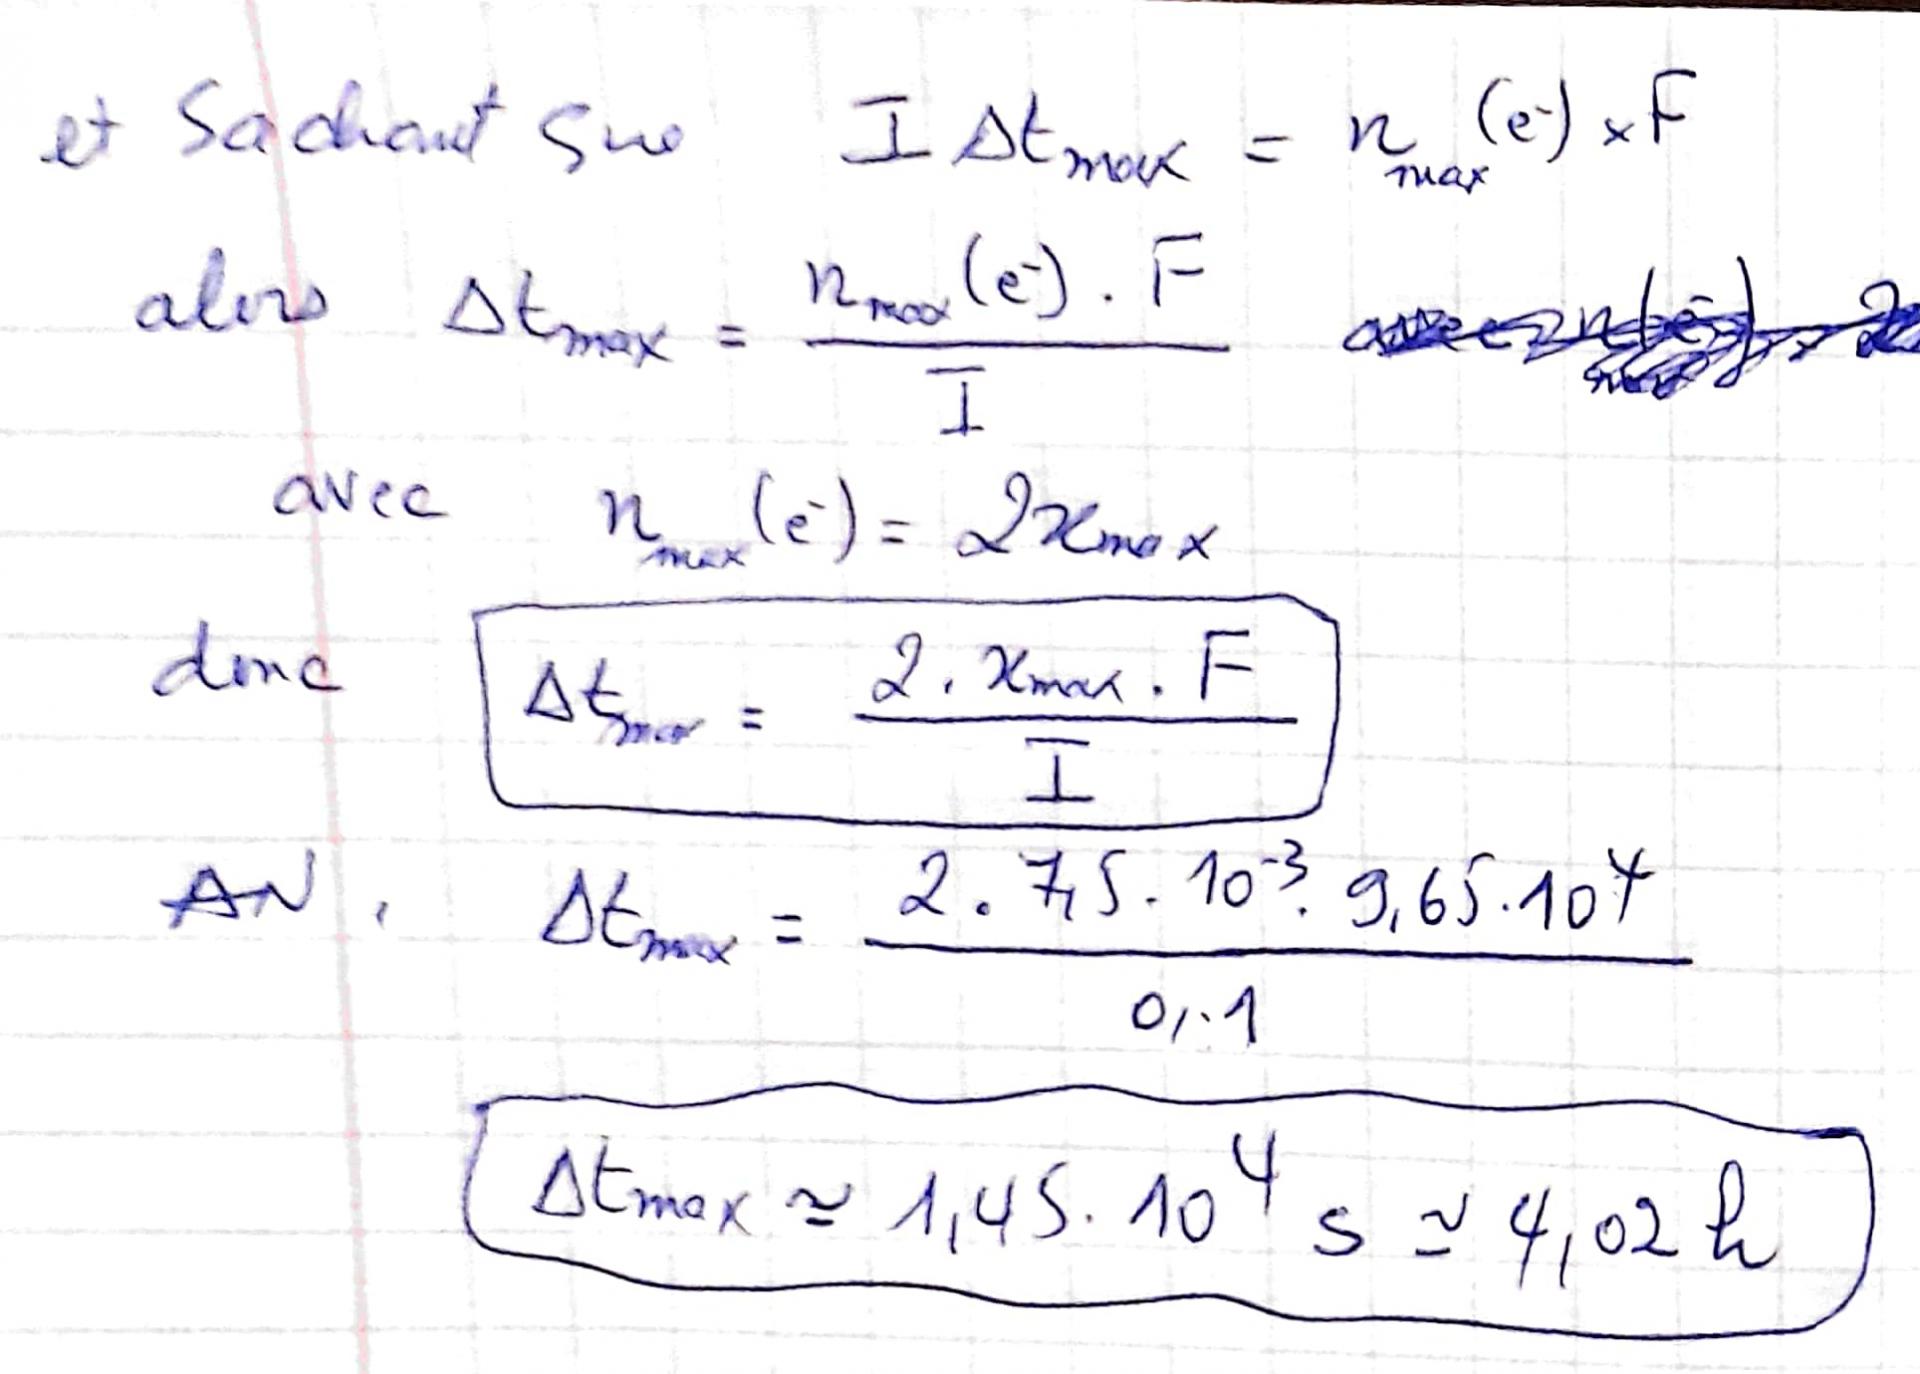 et Sachant que I Δt_max = n_max (e⁻) × F
alors Δt_max = n_max (e⁻) . F / I
avec n_max (e⁻) = 2x_max
donc Δt_max = 2 . x_max . F / I
AN, Δt_max = 2 . 7,5 . 10⁻³ . 9,65 . 10⁴ / 0,1
Δt_max ≃ 1,45 . 10⁴ s ≃ 4,02 h